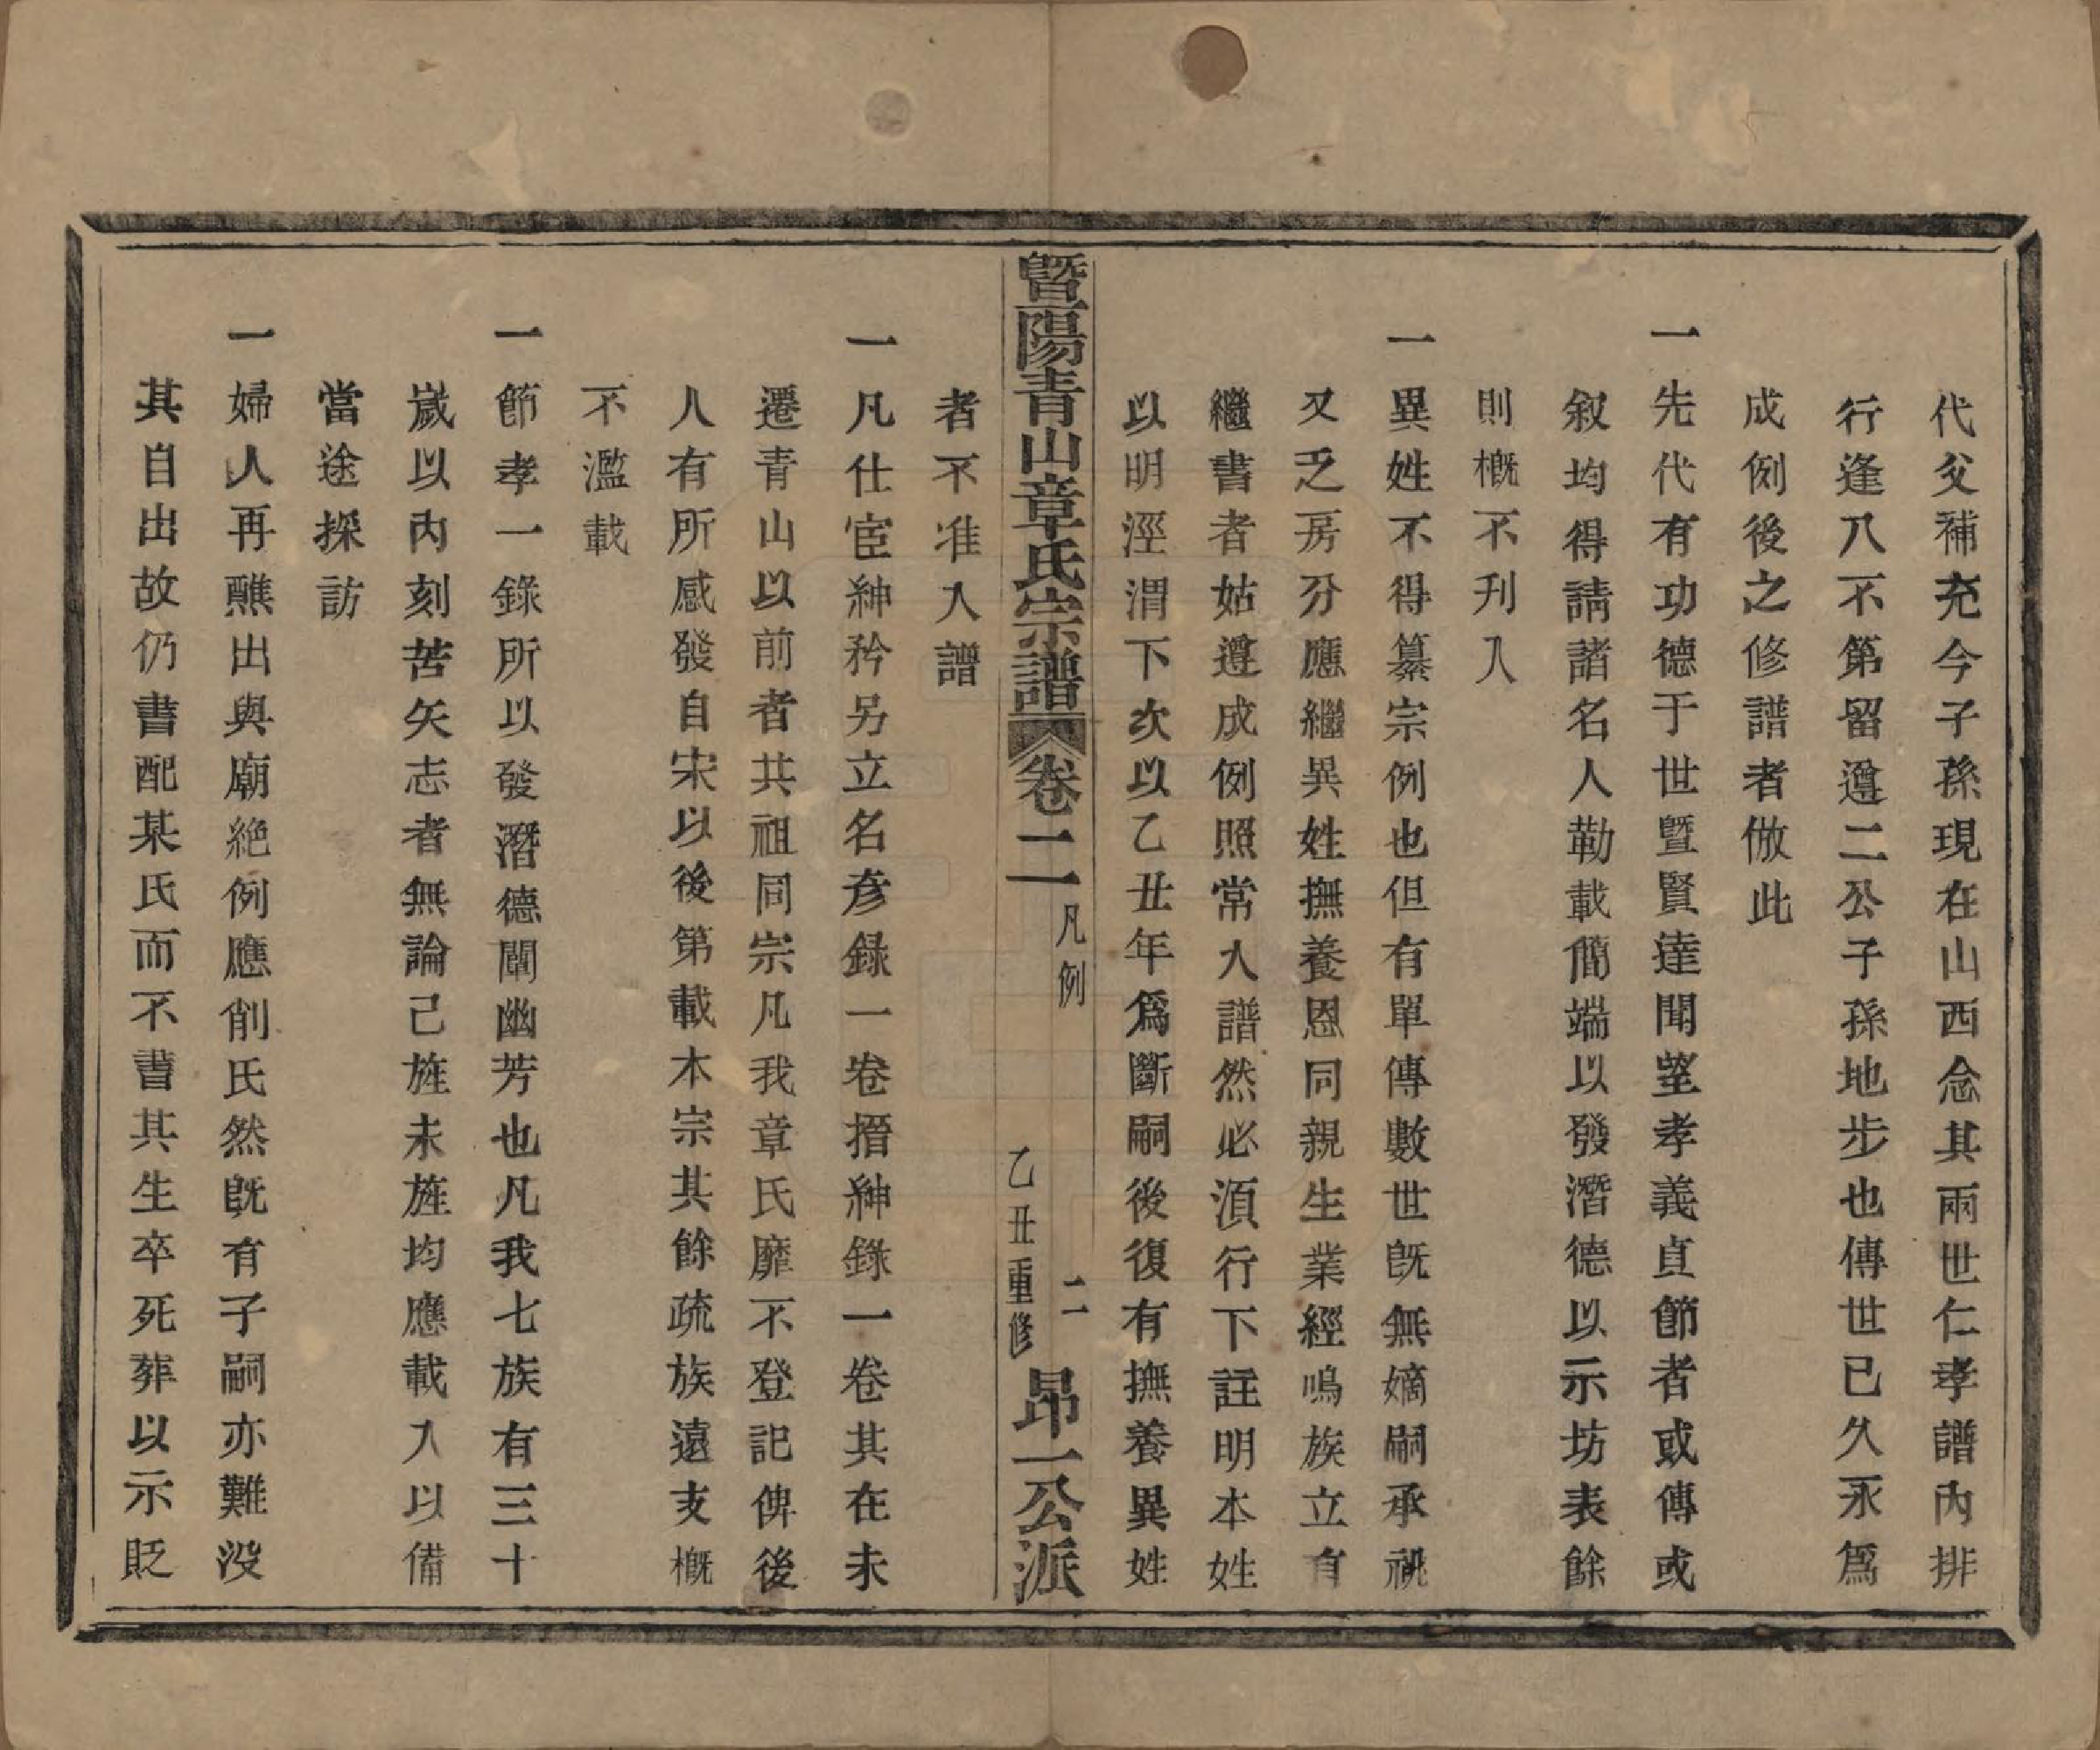 代父補充今子孫現在山西念其兩世仁孝譜內排
行逢八不第留遵二公子孫地步也傳世已久永爲
成例後之修譜者倣此
一先代有功德于世曁賢達聞望孝義貞節者或傳或
敘均得請諸名人勒載簡端以發潛德以示坊表餘
則槪不刋入
一異姓不得纂宗例也但有單傳數世旣無嫡嗣承祧
又乏房分應繼異姓撫養恩同親生業經鳴族立有
繼書者姑遵成例照常入譜然必須行下註明本姓
以明涇渭下次以乙丑年爲斷嗣後復有撫養異姓
曁陽青山章氏宗譜 卷二 凡例 二 乙丑重修 昂一公派
者不准入譜
一凡仕宦紳矜另立名彥錄一卷搢紳錄一卷其在未
遷青山以前者共祖同宗凡我章氏靡不登記俾後
人有所感發自宋以後第載本宗其餘疏族遠支槪
不濫載
一節孝一錄所以發潛德闡幽芳也凡我七族有三十
嵗以內刻苦矢志者無論己旌未旌均應載入以備
當途採訪
一婦人再醮出與廟絶例應削氏然旣有子嗣亦難没
其自出故仍書配某氏而不書其生卒死葬以示貶